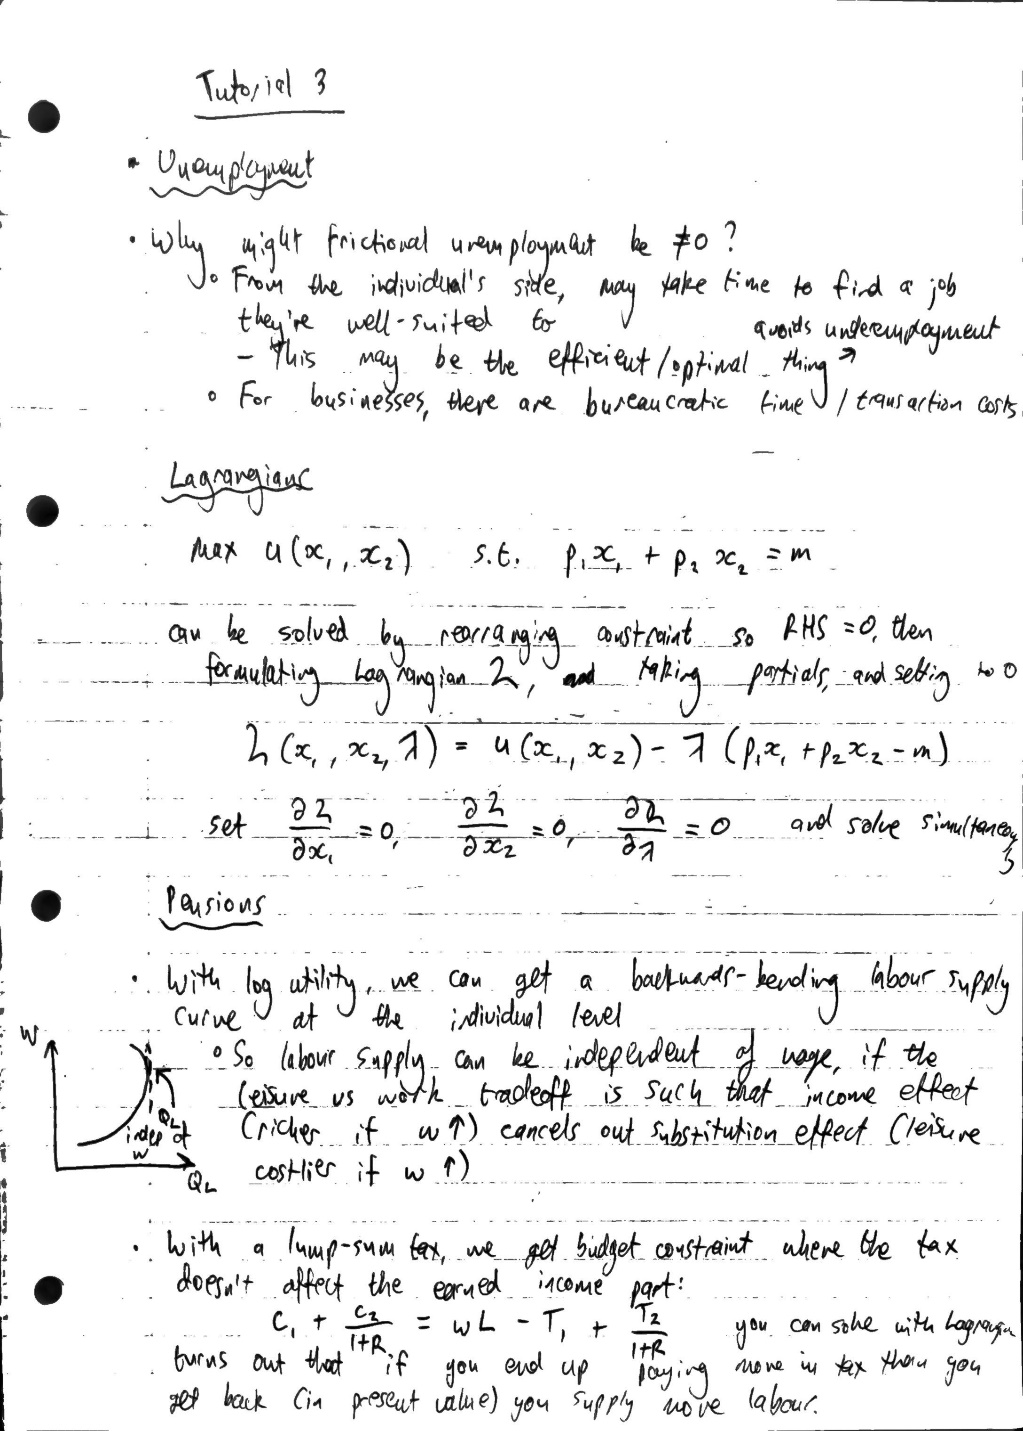 Tutorial 3
• Unemployment
• Why might frictional unemployment be ≠0?
◦ From the individual's side, may take time to find a job
they're well-suited to
avoids underemployment
- This may be the efficient/optimal thing ↗
◦ For businesses, there are bureaucratic time / transaction costs
Lagrangians
max u(x₁, x₂) s.t. p₁x₁ + p₂x₂ = m
can be solved by rearranging constraint so RHS = 0, then
formulating Lagrangian ℒ, taking partials, and setting to 0
ℒ(x₁, x₂, λ) = u(x₁, x₂) - λ(p₁x₁ + p₂x₂ - m)
set ∂ℒ/∂x₁ = 0, ∂ℒ/∂x₂ = 0, ∂ℒ/∂λ = 0 and solve simultaneously
Pensions
• With log utility, we can get a backwards-bending labour supply
curve at the individual level
W
◦ So labour supply can be independent of wage, if the
leisure vs work tradeoff is such that income effect
(richer if w↑) cancels out substitution effect (leisure
costlier if w↑)
Q_L
indep of
w
Q_L
• With a lump-sum tax, we get budget constraint where the tax
doesn't affect the earned income part:
C₁ + C₂/(1+R) = wL - T₁ + T₂/(1+R) you can solve with Lagrangian
turns out that if you end up paying more in tax than you
get back (in present value) you supply more labour.